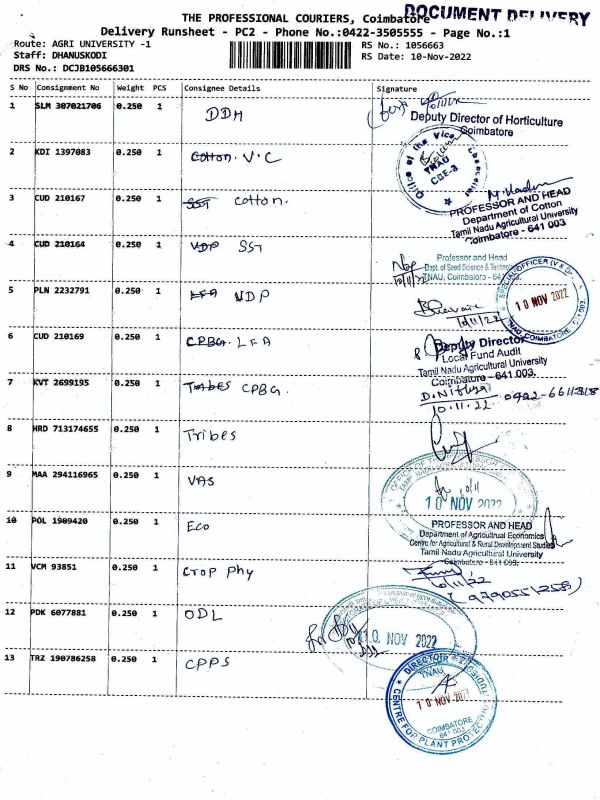 THE PROFESSIONAL COURIERS, Coimbatore
DOCUMENT DELIVERY
Delivery Runsheet - PC2 - Phone No.:0422-3505555 - Page No.:1
Route: AGRI UNIVERSITY -1
RS No.: 1056663
Staff: DHANUSKODI
RS Date: 10-Nov-2022
DRS No.: DCJB105666301
S No Consignment No Weight PCS Consignee Details Signature
1 SLM 307021706 0.250 1 DDH
Deputy Director of Horticulture
Coimbatore
2 KDI 1397083 0.250 1 Cotton. V.C
Office of the Vice Chancellor
TNAU
CBE-3
3 CUD 210167 0.250 1 SST Cotton.
PROFESSOR AND HEAD
Department of Cotton
Tamil Nadu Agricultural University
Coimbatore - 641 003.
4 CUD 210164 0.250 1 VDP SST
Professor and Head
Dept. of Seed Science & Technology
TNAU, Coimbatore - 641 003.
10/11/22
5 PLN 2232791 0.250 1 LFA VDP
10/11/22
SPECIAL OFFICER
10 NOV 2022
TNAU, COIMBATORE
6 CUD 210169 0.250 1 CPBG. LFA
Deputy Director
Local Fund Audit
Tamil Nadu Agricultural University
Coimbatore - 641 003.
7 KVT 2699195 0.250 1 Tribes CPBG.
D. Nithya
10.11.22
8 HRD 713174655 0.250 1 Tribes
9 MAA 294116965 0.250 1 VAS
10/11
10 NOV 2022
10 POL 1909420 0.250 1 Eco
PROFESSOR AND HEAD
Department of Agricultrual Economics
Centre for Agricultural & Rural Development Studies
Tamil Nadu Agricultural University
Coimbatore - 641 003.
11 VCM 93851 0.250 1 Crop Phy
10/11/22
12 PDK 6077881 0.250 1 ODL
10 NOV 2022
13 TRZ 190786258 0.250 1 CPPS
DIRECTOR
TNAU
10 NOV 2022
COIMBATORE
641 003
CENTRE FOR PLANT PROTECTION STUDIES